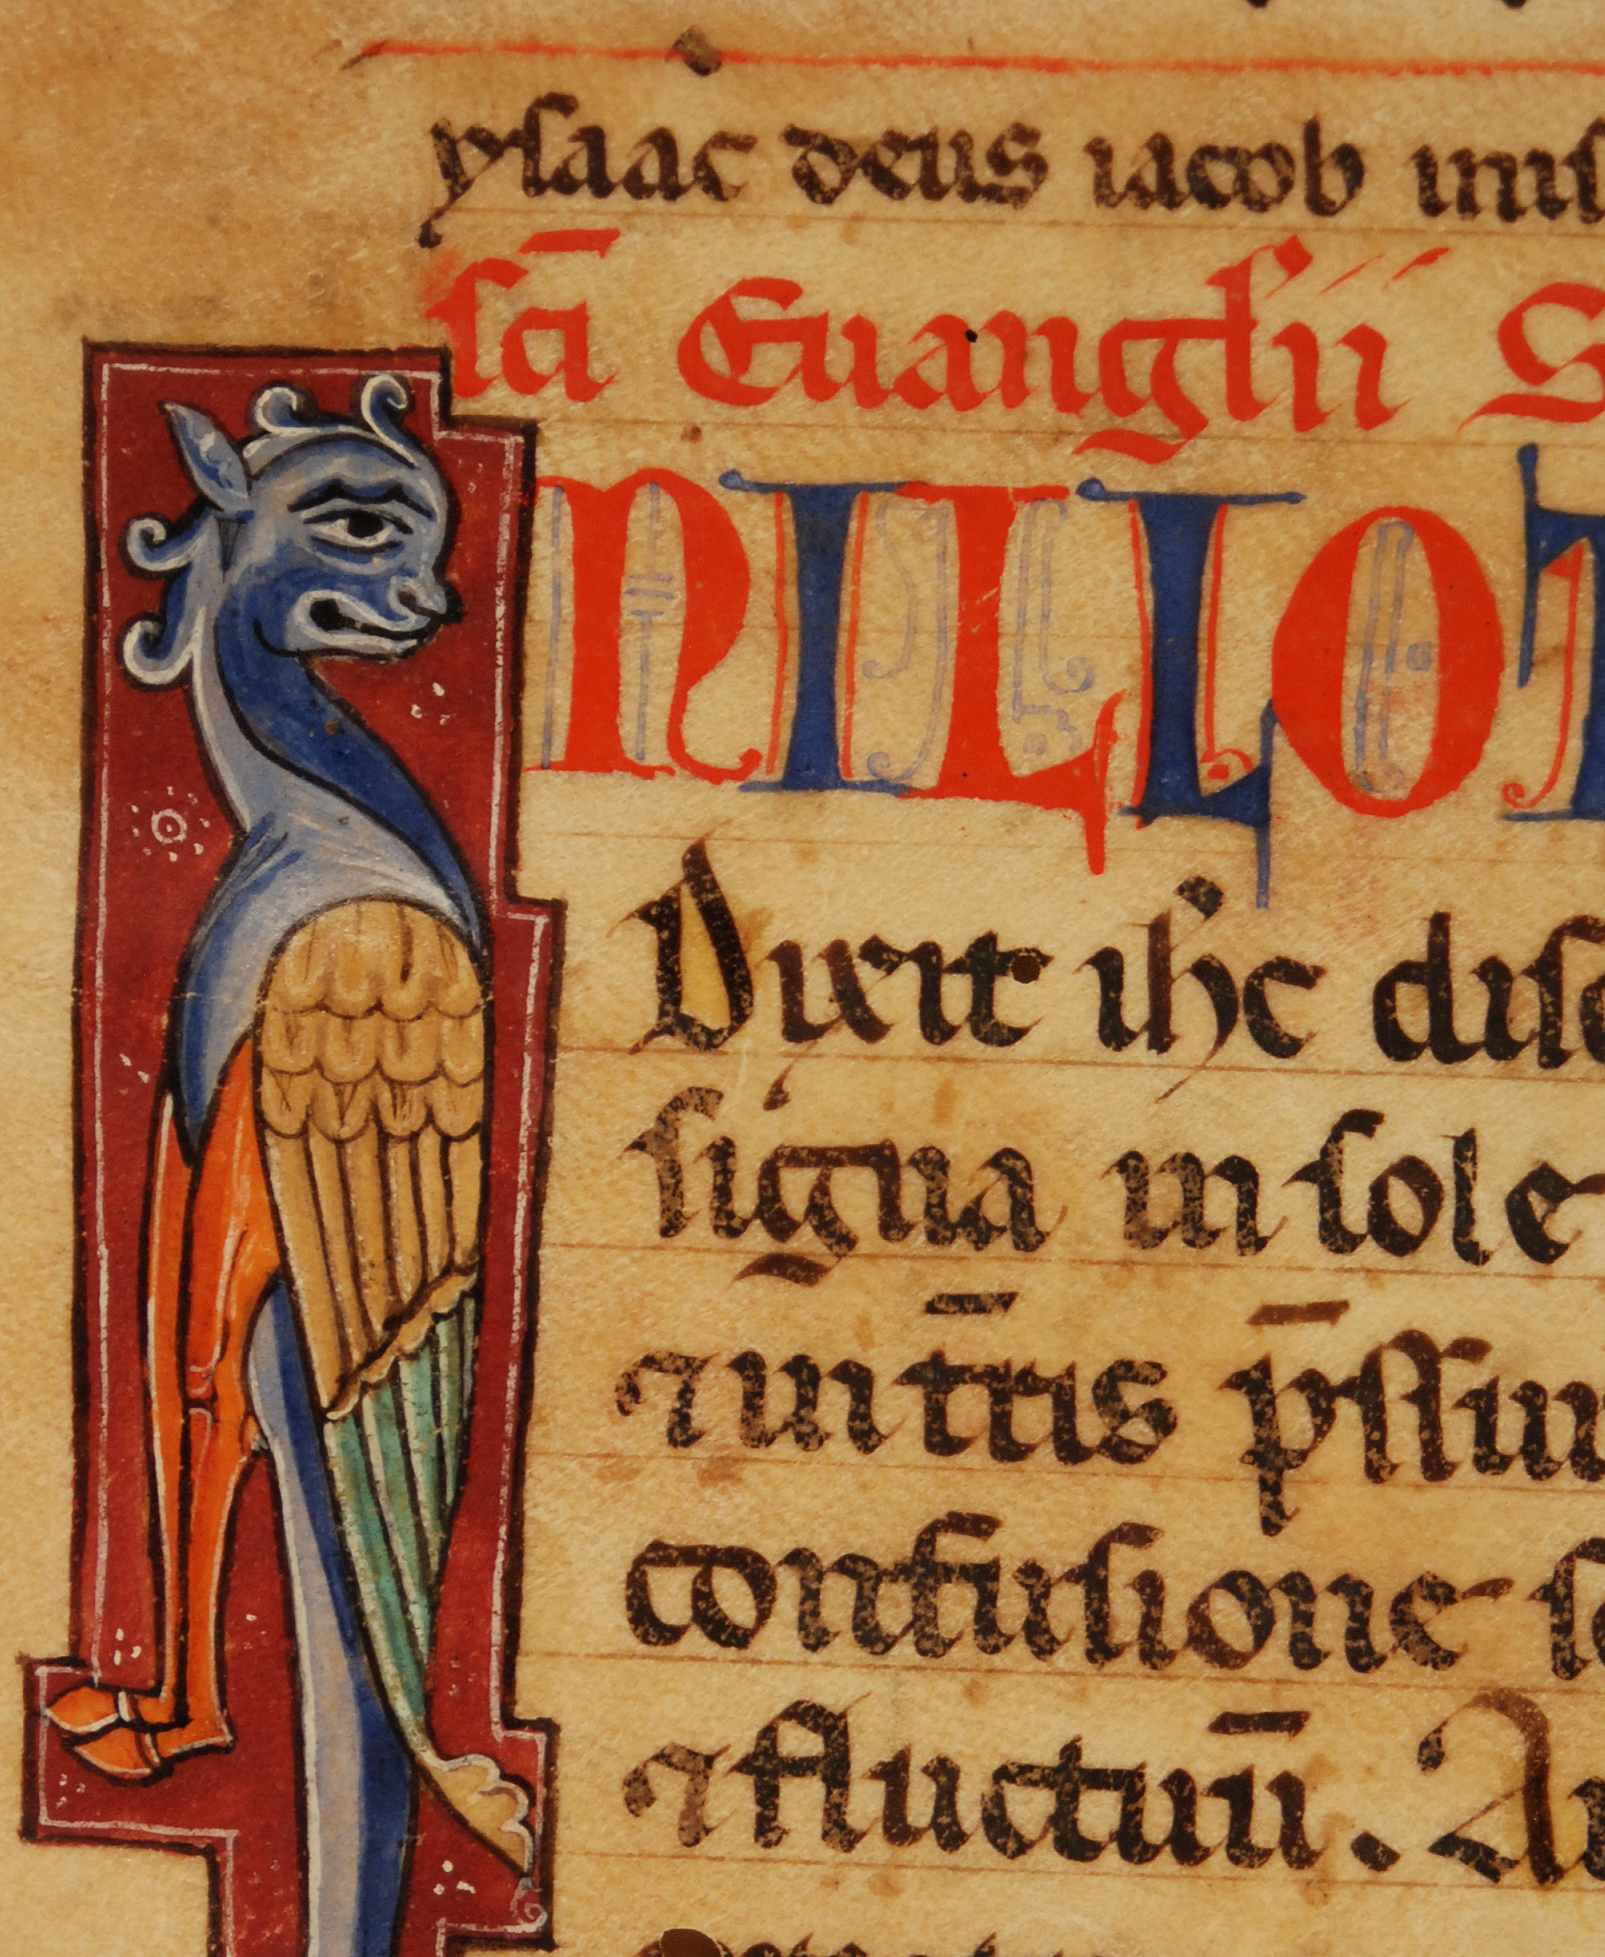 ysaac deus iacob
sc̄i Euanglii S
NILLOT
Dixit ihc disc
signa in sole
⁊ uirtutis p̄ssur
confusione so
⁊ fluctuū. A